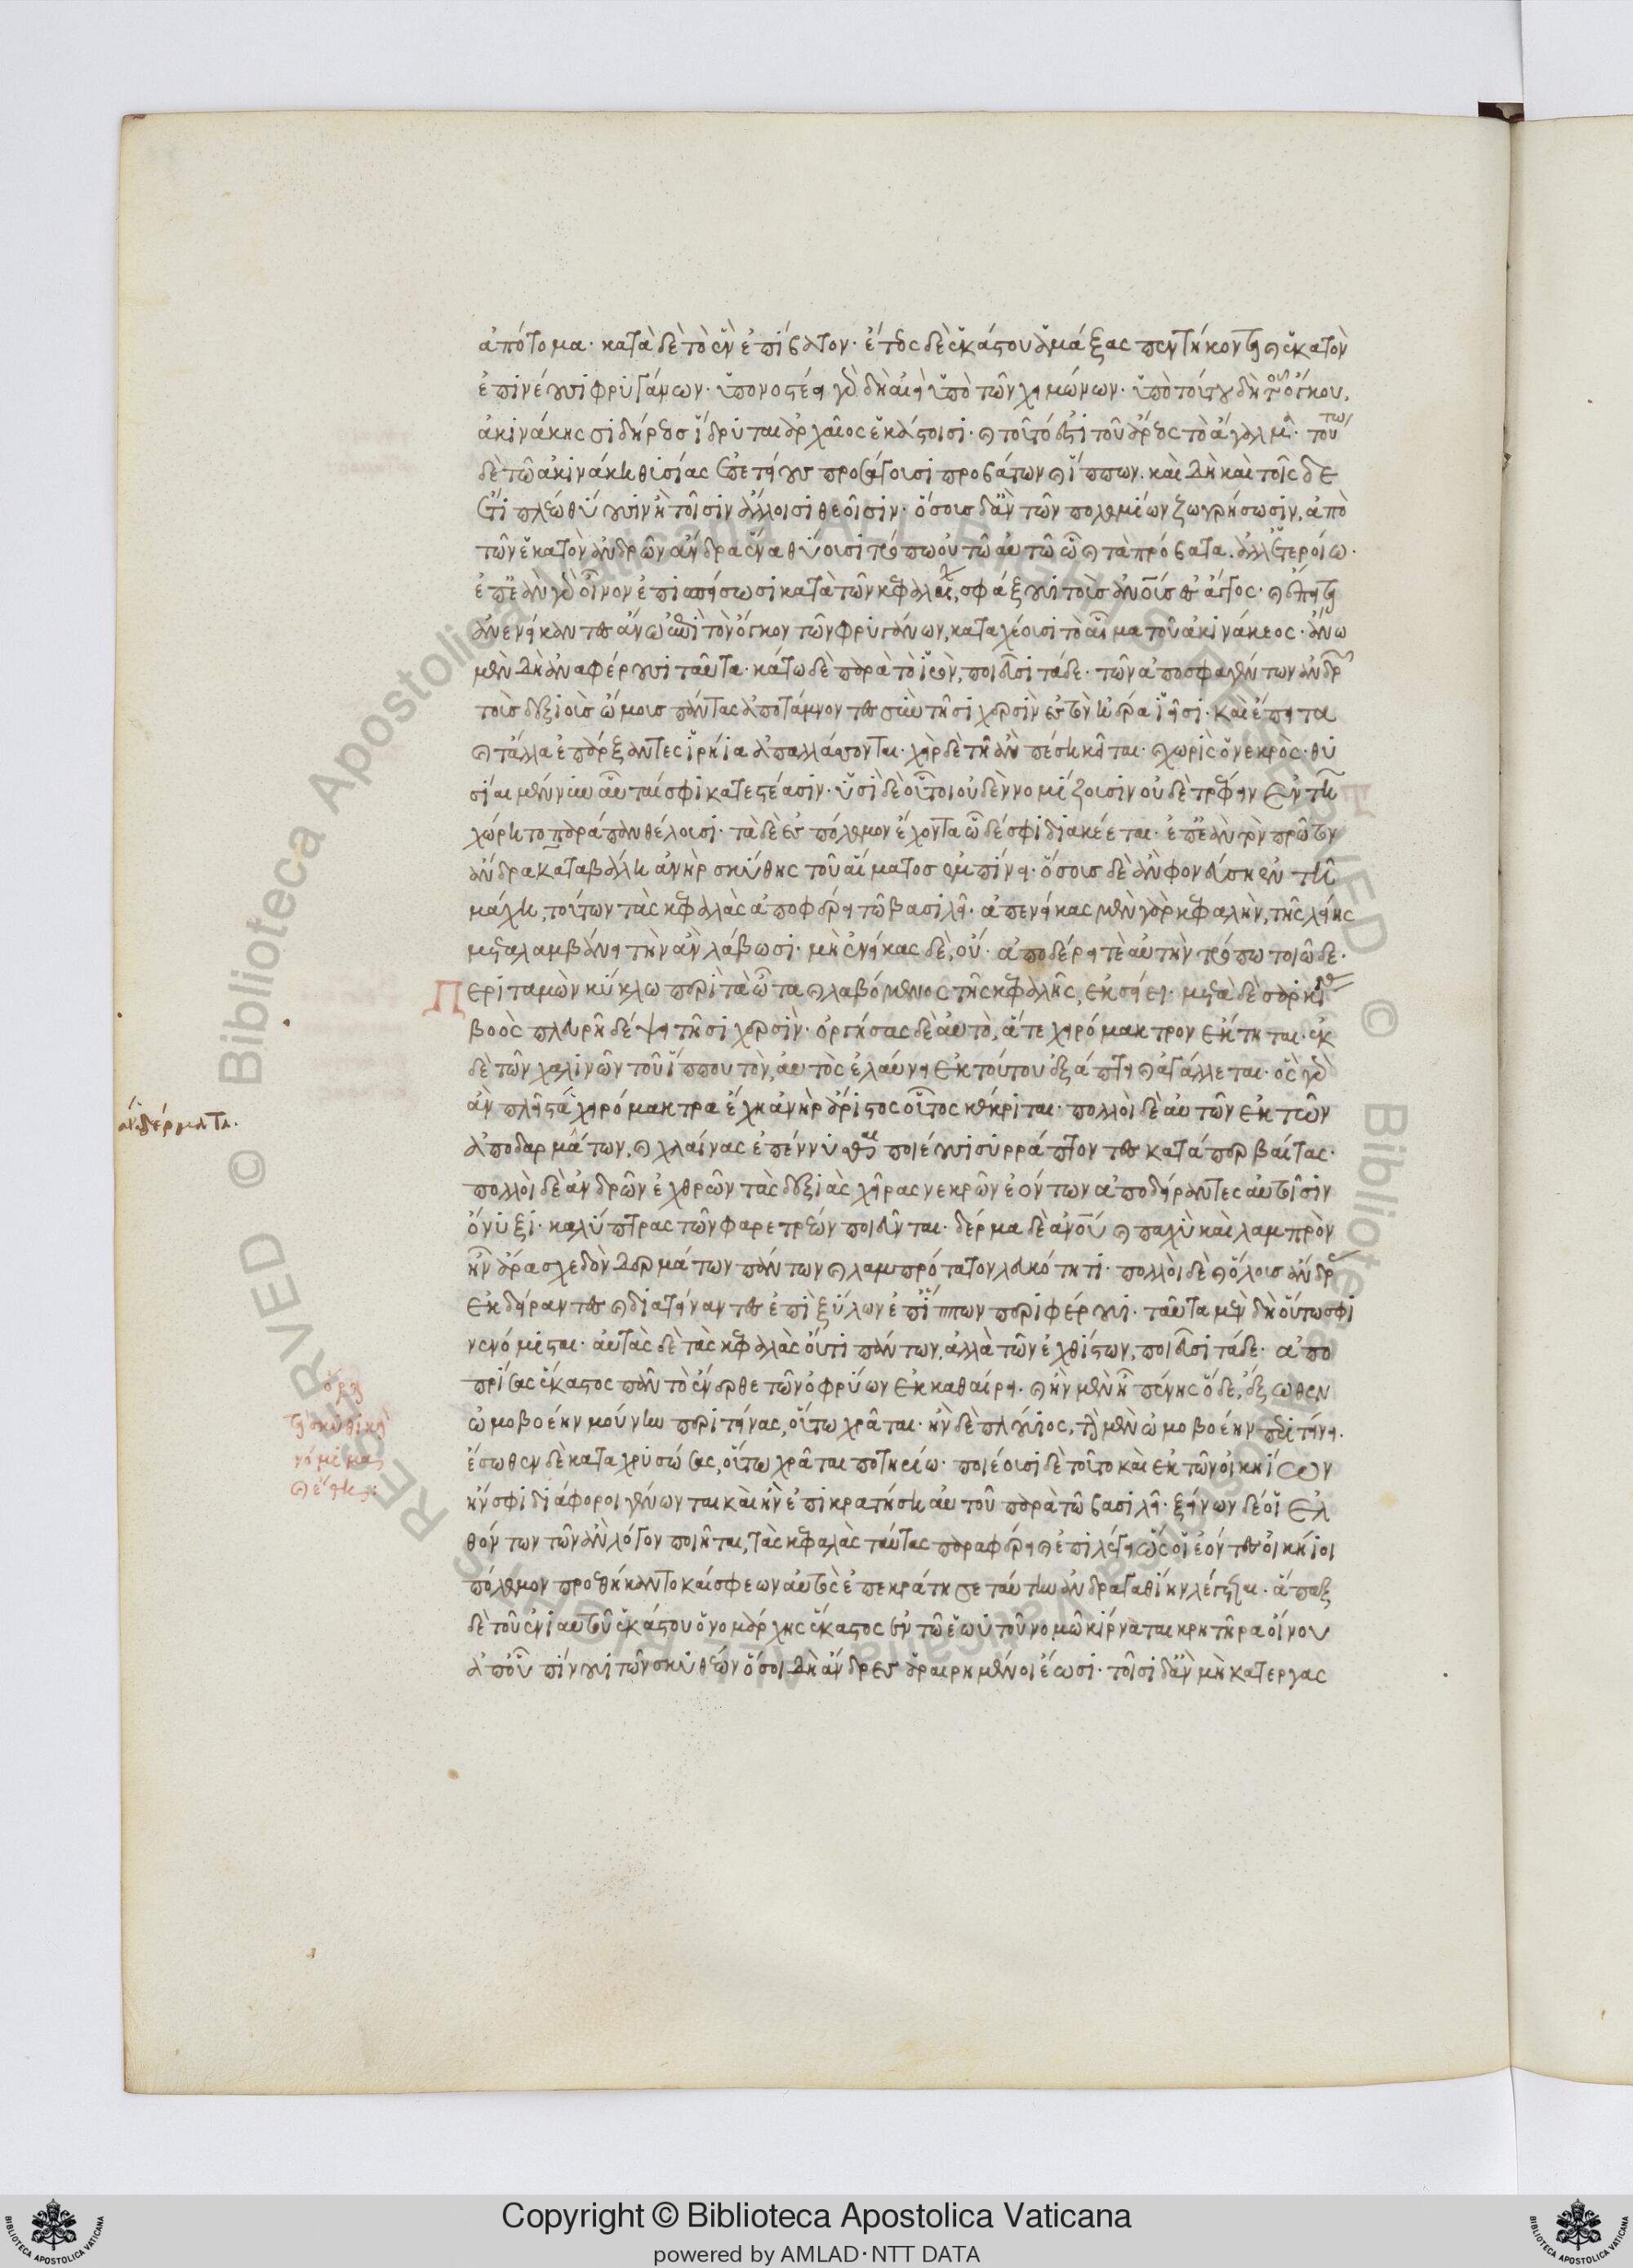 ἀπότομα· κατὰ δὲ τὸ ἓν ἐπίβατον· ἔτους δὲ ἑκάστου ἁμάξας πεντήκοντα καὶ ἑκατὸν
ἐπινέουσι φρυγάνων· ὑπονοστέει γὰρ δὴ αἰεὶ ὑπὸ τῶν χειμώνων· ὑπὸ τούτου δὴ τοῦ ὄγκου,
ἀκινάκης σιδήρεος ἵδρυται ἀρχαῖος ἑκάστοισι· καὶ τοῦτό ἐστι τοῦ ἄρεος τὸ ἄγαλμα· τούτω
δὲ τῶ ἀκινάκη θυσίας ἐπετείους προσάγουσι προβάτων καὶ ἵππων. καὶ δὴ καὶ τοῖσδε
ἔτι πλέω θύουσιν ἢ τοῖσιν ἄλλοισι θεοῖσιν· ὅσους δ' ἂν τῶν πολεμίων ζωγρήσωσιν, ἀπὸ
τῶν ἑκατὸν ἀνδρῶν ἄνδρα ἕνα θύουσι τρόπω οὐ τῶ αὐτῶ ὧ καὶ τὰ πρόβατα. ἀλλ' ἑτεροίω·
ἐπεὰν γὰρ οἶνον ἐπισπείσωσι κατὰ τῶν κεφαλέων, σφάξουσι τοὺς ἀνους ἐς ἄγγος· καὶ ἔπειτα
ἀνενείκαντες ἄνω ἐπὶ τὸν ὄγκον τῶν φρυγάνων, καταχέουσι τὸ αἷμα τοῦ ἀκινάκεος· ἄνω
μὲν δὴ ἀναφέρουσι ταῦτα· κάτω δὲ παρὰ τὸ ἱρὸν, ποιεῦσι τάδε· τῶν ἀποσφαγέντων ἀνδρῶν
τοὺς δεξιοὺς ὤμους πάντας ἀποτάμνοντες σὺν τῆσι χερσὶν ἐς τὸν ἠέρα ἱεῖσι· καὶ ἔπειτα
καὶ τἄλλα ἀπάρξαντες ἱρήια ἀπαλλάσσονται· χεὶρ δὲ τῆ ἂν πέση κεῖται· καὶ χωρὶς ὁ νεκρός· θυ
σίαι μέν νυν αὗται σφι κατεστέασιν· ὑσὶ δὲ οὗτοι οὐδὲν νομίζουσιν οὐδὲ τρέφειν ἐν τῆ
χώρη τοπαράπαν θέλουσι· τὰ δὲ ἐς πόλεμον ἔχοντα ὧδέ σφι διακέεται· ἐπεὰν τὸν πρῶτον
ἄνδρα καταβάλη ἀνὴρ σκύθης τοῦ αἵματος ἐμπίνει· ὅσους δὲ ἂν φονεύση ἐν τῆ
μάχη, τούτων τὰς κεφαλὰς ἀποφέρει τῶ βασιλέι· ἀπενείκας μὲν γὰρ κεφαλὴν, τῆς ληίης
μεταλαμβάνει τὴν ἂν λάβωσι· μὴ ἐνείκας δὲ, οὔ· ἀποδέρει τὲ αὐτὴν τρόπω τοιῶδε·
Περιταμὼν κύκλω περὶ τὰ ὦτα καὶ λαβόμενος τῆς κεφαλῆς, ἐκσείει· μετὰ δὲ σαρκίσας
βοὸς πλευρῆ δέψει τῆσι χερσὶν· ὀργήσας δὲ αὐτὸ, ἅτε χειρόμακτρον ἔκτηται· ἐκ
δὲ τῶν χαλινῶν τοῦ ἵππου τὸν, αὐτὸς ἐλαύνει ἐκ τούτου ἐξάπτει καὶ ἀγάλλεται· ὃς γὰρ
ἂν πλεῖστα χειρόμακτρα ἔχη ἀνὴρ ἄριστος οὗτος κέκριται· πολλοὶ δὲ αὐτῶν ἐκ τῶν
ἀποδαρμάτων, καὶ χλαίνας ἐπέννυσθαι ποιέουσι συρράπτοντες κατάπερ βαίτας·
πολλοὶ δὲ ἀνδρῶν ἐχθρῶν τὰς δεξιὰς χεῖρας νεκρῶν ἐόντων ἀποδείραντες αὐτοῖσιν
ὄνυξι· καλύπτρας τῶν φαρετρέων ποιεῦνται· δέρμα δὲ ἀνου καὶ παχὺ καὶ λαμπρὸν
ἦν ἄρα σχεδὸν δερμάτων πάντων καὶ λαμπρότατον λευκότητι· πολλοὶ δὲ καὶ ὅλους ἄνδρας
ἐκδείραντες καὶ διατείναντες ἐπὶ ξύλων ἐπ' ἵππων περιφέρουσι· ταῦτα μὲν δὴ οὕτω σφι
νενόμισται· αὐτὰς δὲ τὰς κεφαλὰς οὔτι πάντων, ἀλλὰ τῶν ἐχθίστων, ποιεῦσι τάδε· ἀπο
πρίσας ἕκαστος πᾶν τὸ ἔνερθε τῶν ὀφρύων ἐκκαθαίρει· καὶ ἢν μὲν ἦ πένης ὅδε, ἔξωθεν
ὠμοβοέην μούνην περιτείνας, οὕτω χρᾶται· ἢν δὲ πλούσιος, τὴν μὲν ὠμοβοέην περιτείνει.
ἔσωθεν δὲ καταχρυσώσας, οὕτω χρᾶται ποτηρίω· ποιέουσι δὲ τοῦτο καὶ ἐκ τῶν οἰκηίων
ἤν σφι διάφοροι γένωνται καὶ ἢν ἐπικρατήση αὐτοῦ παρὰ τῶ βασιλέι· ξείνων δέ οἱ ἐλ
θόντων τῶν ἂν λόγον ποιῆται, τὰς κεφαλὰς ταύτας παραφέρει καὶ ἐπιλέγει ὥς οἱ ἐόντες οἰκήιοι
πόλεμον προσεθήκαντο καί σφεων αὐτὸς ἐπεκράτησε ταύτην ἀνδραγαθίην λέγεται· ἅπαξ
δὲ τοῦ ἐνιαυτοῦ ἑκάστου ὁ νομάρχης ἕκαστος ἐν τῶ ἑωυτοῦ νομῶ κίρναται κρητῆρα οἴνου
ἀπ' οὗ πίνουσι τῶν σκυθέων ὅσοι δὴ ἄνδρες ἀραιρημένοι ἔωσι· τοῖσι δ' ἂν μὴ κατεργας